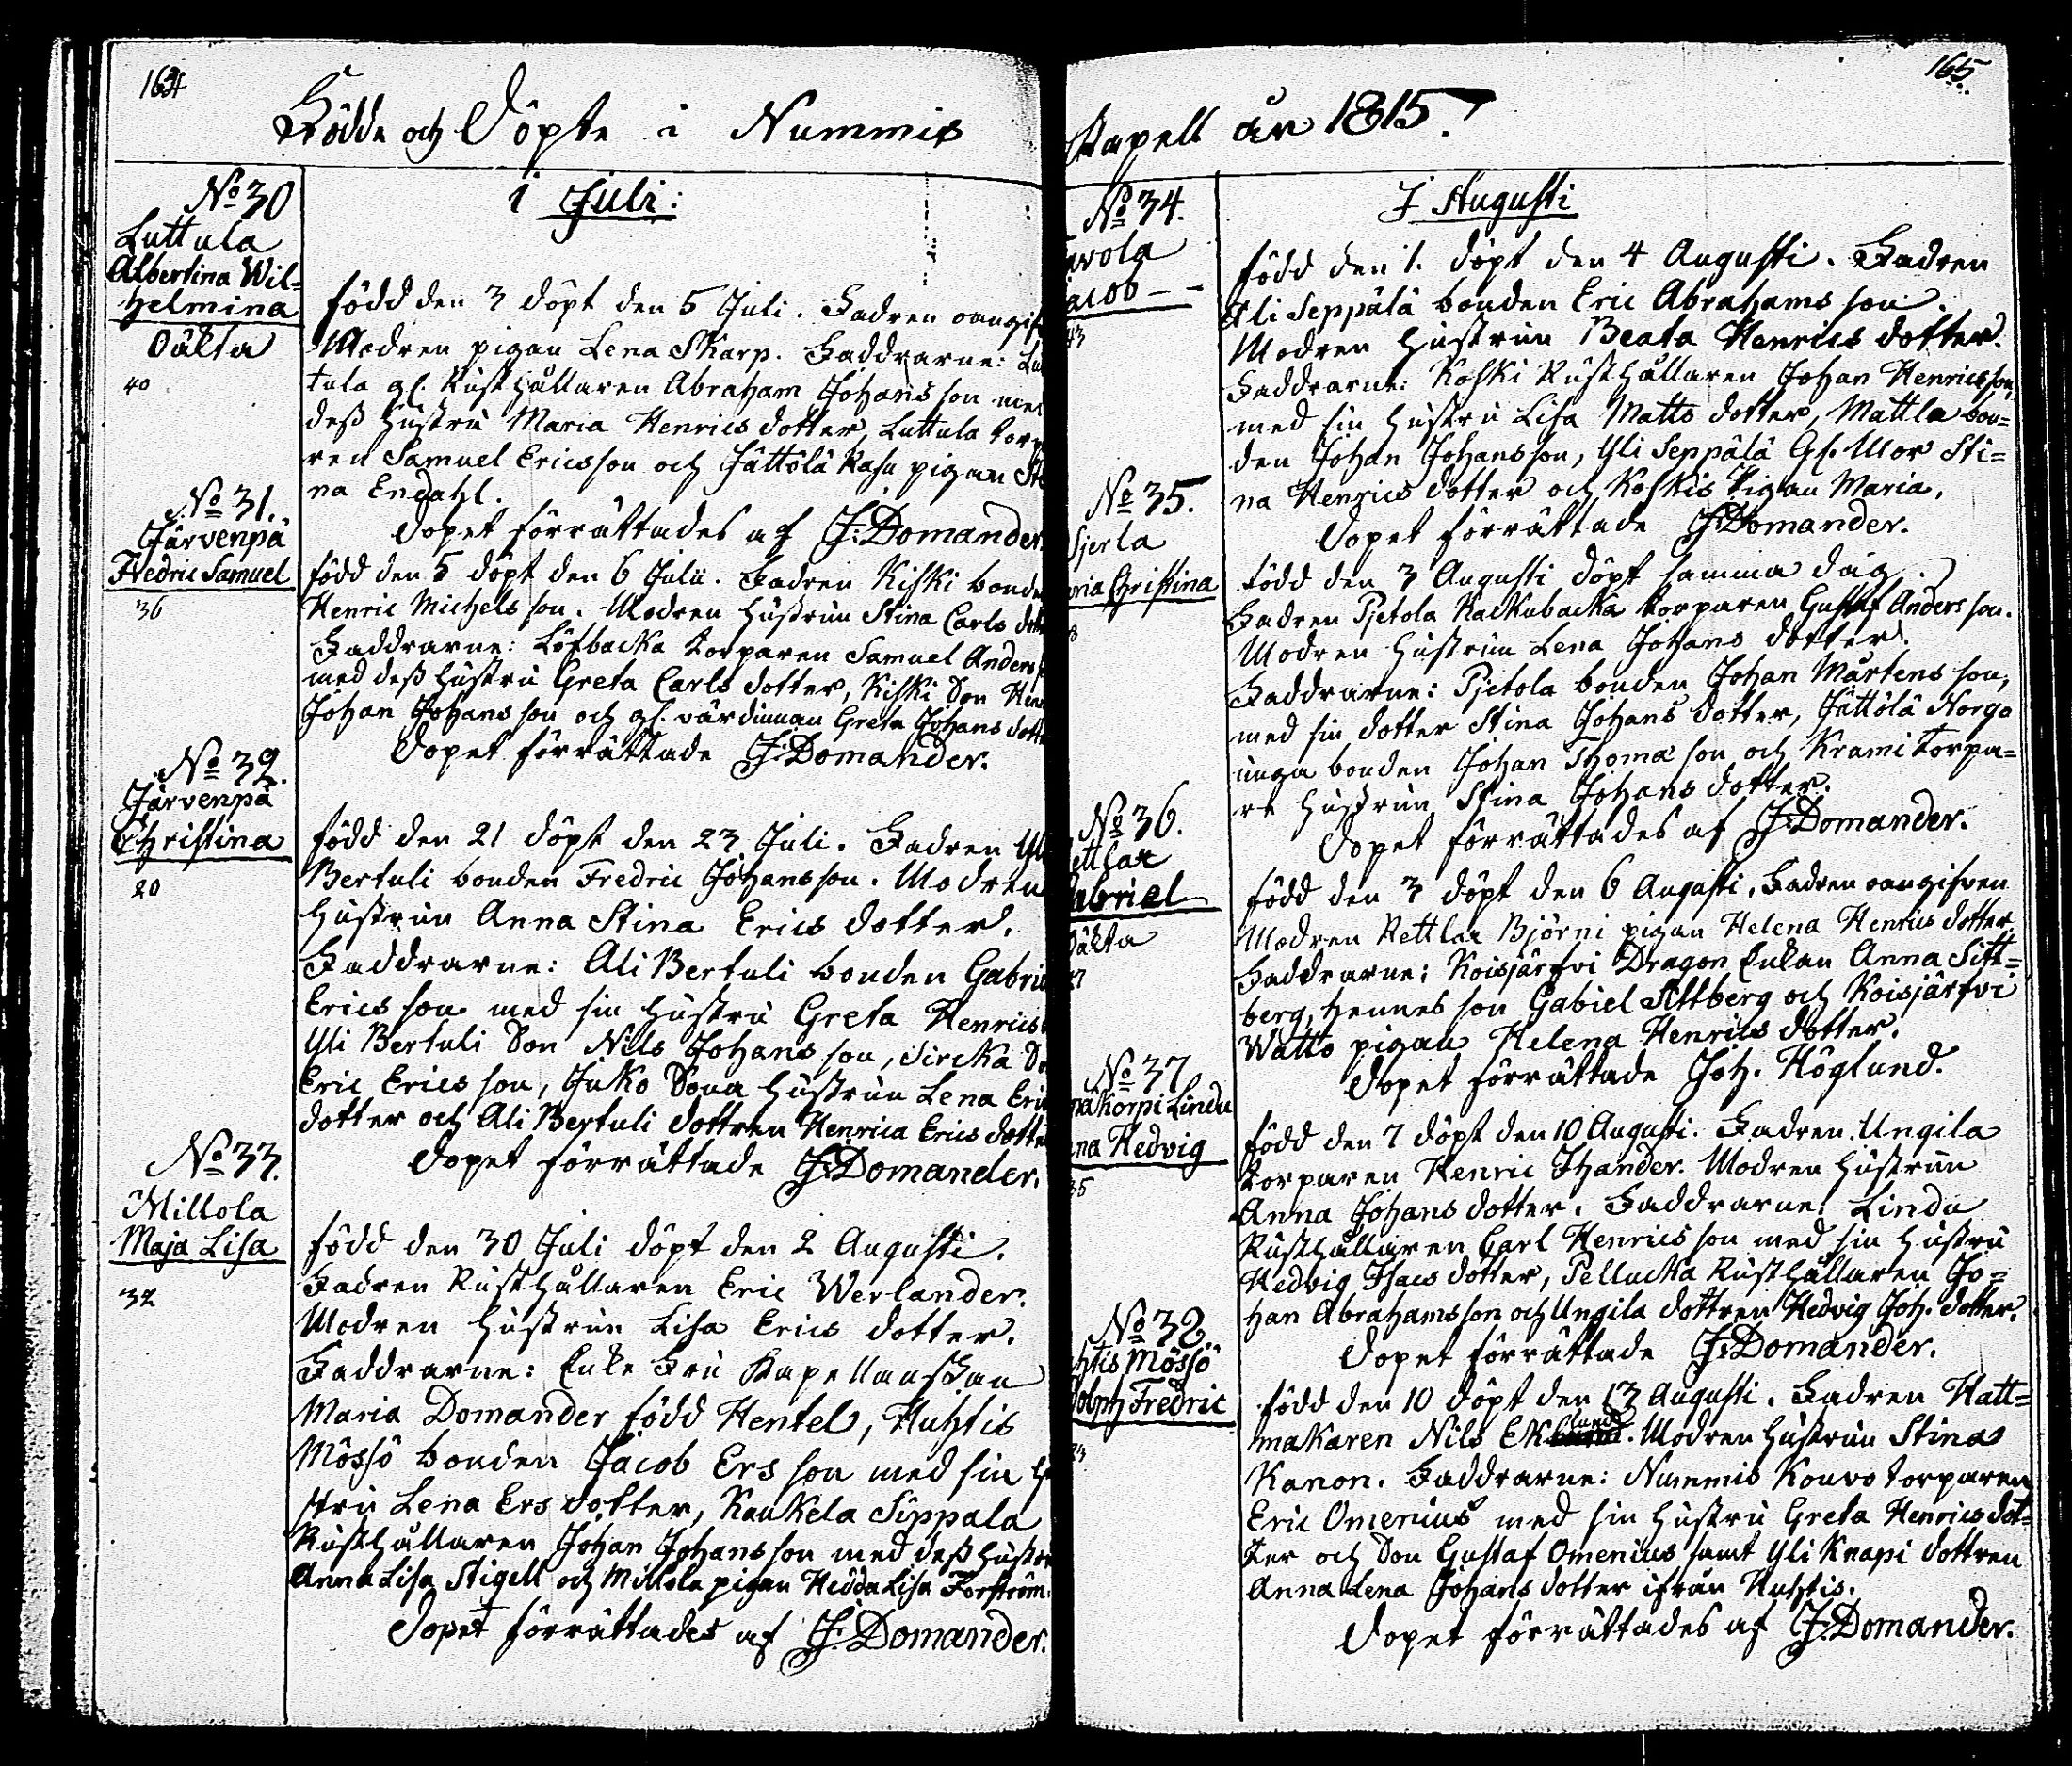 164
Födde och Döpte i Nummis
No 30
Luttula
Albertina Wil=
helmina
Oäkta
40
i Juli:
född den 3 döpt den 5 Juli. Fadren oangif
Modren pigan Lena Skarp. Faddrarne: Lut
tula gl. Rusthållaren Abraham Johans son med
dess hustru Maria Henrics dotter, Luttula torp
ren Samuel Ericsson och Jättölä Rasu pigan Sti
na Endahl.
Dopet förrättades af J: Domander.
No 31.
Järvenpä
Fredric Samuel
36
född den 5 döpt den 6 Julii. Fadren Kiski bonde
Henric Michels son. Modren hustrun Stina Carls dott
Faddrarne: Löfbacka torparen Samuel Anders
med dess hustru Greta Carls dotter, Kiski Son Hen
Johan Johans son och gl. värdinnan Greta Johans dotte
Dopet förrättade J: Domander.
No 32.
Järvenpä
Christina
20
född den 21 döpt den 23 Juli. Fadren Yli
Bertuli bonden Fredric Johansson. Modren
hustrun Anna Stina Erics dotter.
Faddrarne: Ali Bertuli bonden Gabrie
Erics son med sin hustru Greta Henrics
Yli Bertuli Son Nils Johans son, Sircka So
Eric Erics son, Juko Sona hustrun Lena Eric
dotter och Ali Bertuli dottren Henrica Erics dotte
Dopet förrättade J: Domander.
No 33.
Millola
Maja Lisa
32
född den 30 Juli döpt den 2 Augusti.
Fadren Rusthållaren Eric Werlander.
Modren hustrun Lisa Erics dotter.
Faddrarne: Enke Fru Kapellanskan
Maria Domander född Hentel, Huhtis
Mössö bonden Jacob Ers son med sin hu
stru Lena Ers dotter, Kaukela Sippala
Rusthållaren Johan Johans son med dess hustru
Anna Lisa Stigell och Millola pigan Hedda Lisa Forström.
Dopet förrättades af J: Domander.
165
Kapell år 1815.
No 34.
avola
acob - -
43
I Augusti
född den 1. döpt den 4 Augusti. Fadren
Ali Seppälä bonden Eric Abrahams son.
Modren hustrun Beata Henrics dotter.
Faddrarne: Koski Rusthållaren Johan Henrics son,
med sin hustru Lisa Matts dotter, Mattla bon=
den Johan Johansson, Yli Seppälä Gl. Mor Sti=
na Henrics dotter och Koskis Pigan Maria.
Dopet förrättade J: Domander.
No 35.
Sjerla
aria Christina
8
född den 3 Augusti döpt samma dag.
Fadren Pjetola Kalkubacka torparen Gustaf Anders son.
Modren hustrun Lena Johans dotter.
Faddrarne: Pjetola bonden Johan Mårtens son,
med sin dotter Stina Johans dotter, Jättölä Norgo
unga bonden Johan Thoma son och Krami torpa=
re hustrun Stina Johans dotter.
Dopet förrättades af J: Domander.
No 36.
ettlax
abriel
Oäkta
27
född den 3 döpt den 6 Augusti. Fadren oangifven
Modren Rettlax Björni pigan Helena Henrics dotter.
Faddrarne: Koisjärfvi Dragon Enkan Anna Sitt=
berg, hennes son Gabiel Sittberg och Koisjärfvi
Watto pigan Helena Henrics dotter.
Dopet förrättade Joh. Höglund.
No 37
nakorpi Lindu
nna Hedvig
35
född den 7 döpt den 10 Augusti. Fadren Ungila
torparen Henric Thander. Modren hustrun
Anna Johans dotter. Faddrarne: Lindu
Rusthållaren Carl Henrics son med sin hustru
Hedvig Isacs dotter, Pellucka Rusthållaren Jo=
han Abrahamsson och Ungila dottren Hedvig Joh. dotter.
Dopet förrättade J: Domander.
No 38.
uhtis Mössö
dolph Fredric
23
född den 10 döpt den 13 Augusti. Fadren Hatt=
makaren Nils Eklund. Modren hustrun Stina
Kanon. Faddrarne: Nummis Kouvo torparen
Eric Omenius med sin hustru Greta Henrics dot=
ter och Son Gustaf Omenius samt Yli Knapi dottren
Anna Lena Johans dotter ifrån Huhtis.
Dopet förrättades af J: Domander.